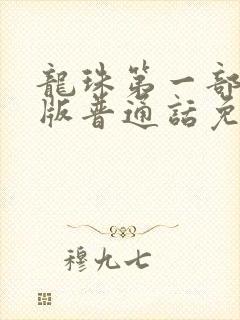 龍珠第一部
版普通話免
穆九七